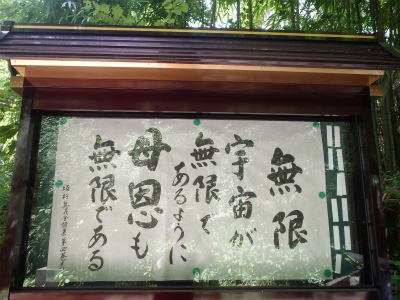 無限
宇宙が
無限で
あるように
母恩も
無限である